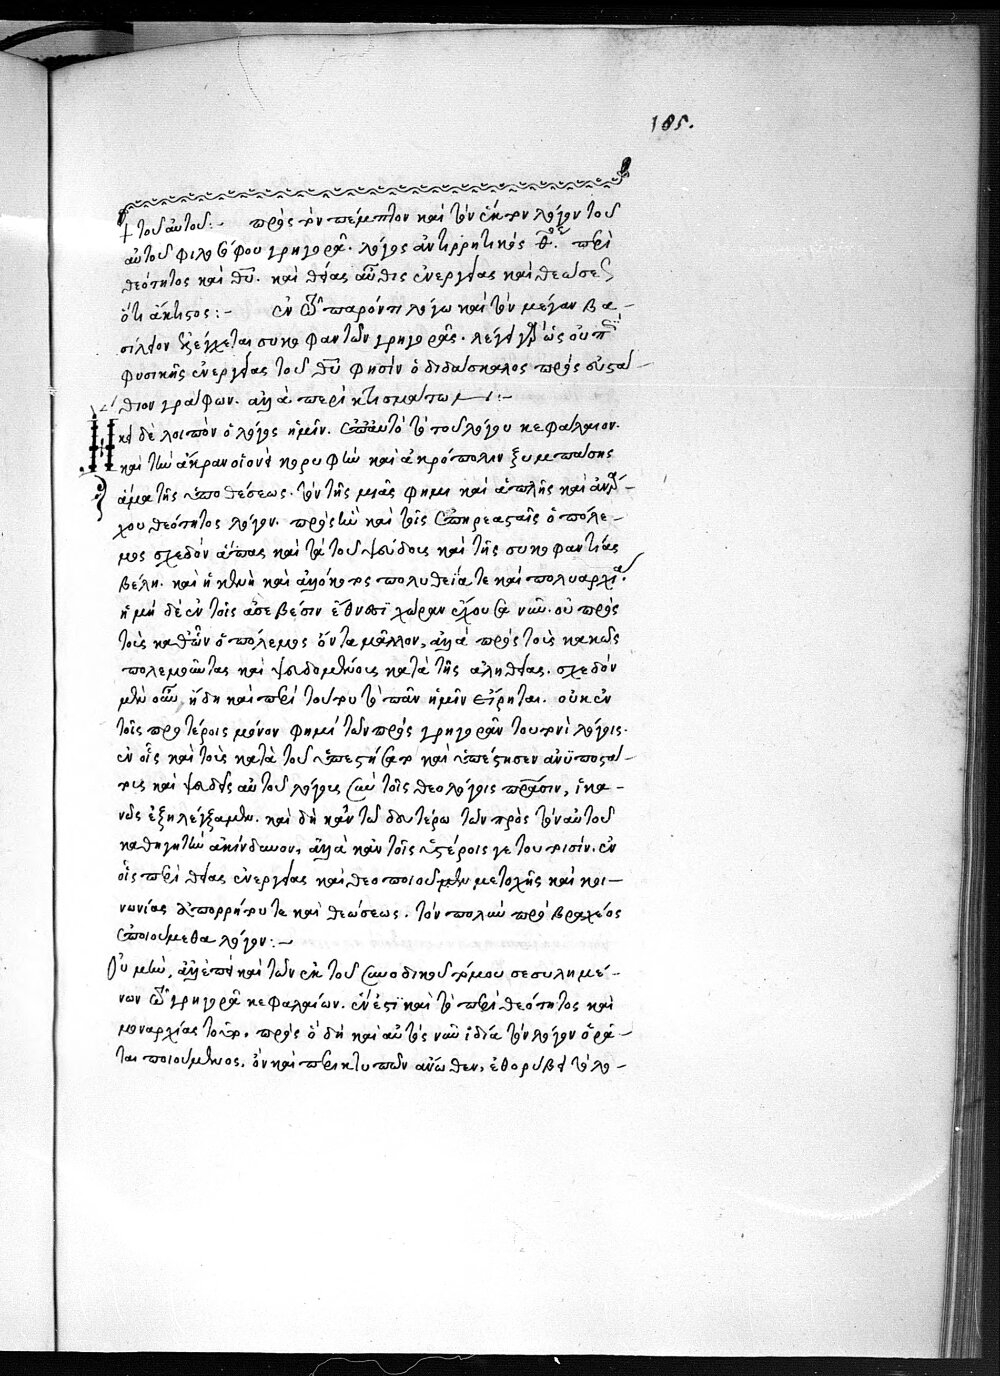 185.
† τοῦ αὐτοῦ:- πρὸς τὸν πέμπτον καὶ τὸν ἕκτον λόγον τοῦ
αὐτοῦ φιλοσόφου γρηγορᾶ. λόγος ἀντιρρητικὸς θ. περὶ
θεότητος καὶ θυ. καὶ θείας αὖθις ἐνεργείας καὶ θεώσεως
ὅτι ἄκτιστος:- ἐν τῷ παρόντι λόγω καὶ τὸν μέγαν βα-
σίλειον ἐξελέγχεται συκοφαντῶν γρηγορᾶς. λέγει γὰρ ὡς οὐ περὶ
φυσικῆς ἐνεργείας τοῦ θυ φησὶν ὁ διδάσκαλος πρὸς εὐστά-
θιον γράφων. ἀλλὰ περὶ κτισμάτων:-
Ἥκει δὲ λοιπὸν ὁ λόγος ἡμῖν. ἐπ' αὐτὸ τὸ τοῦ λόγου κεφάλαιον.
καὶ τὴν ἄκραν οἱονεὶ κορυφὴν καὶ ἀκρόπολιν ξυμπάσης
ἅμα τῆς ὑποθέσεως. τὸν τῆς μιᾶς φημι καὶ ἁπλῆς καὶ ἀνάρ-
χου θεότητος λόγον. πρὸς ἣν καὶ τοῖς ἐπηρεασταῖς ὁ πόλε-
μος σχεδὸν ἅπας καὶ τὰ τοῦ ψεύδους καὶ τῆς συκοφαντίας
βέλη. καὶ ἡ καινὴ καὶ ἀλλόκοτος πολυθεΐα τε καὶ πολυαρχία.
ἡ μὴ δὲ ἐν τοῖς ἀσεβέσιν ἔθνεσι χώραν ἔχουσα νῦν. οὐ πρὸς
τοὺς καθ' ὧν ὁ πόλεμος ὄντα μᾶλλον, ἀλλὰ πρὸς τοὺς κακῶς
πολεμοῦντας καὶ ψευδομένους κατὰ τῆς ἀληθείας. σχεδὸν
μὲν οὖν, ἤδη καὶ περὶ τούτου τὸ πᾶν ἡμῖν εἴρηται. οὐκ ἐν
τοῖς προτέροις μόνον φημὶ τῶν πρὸς γρηγορᾶν τουτονὶ λόγοις.
ἐν οἷς καὶ τοὺς κατὰ τοῦ ὑπεστήσατο καὶ ὑπέστησεν ἀνϋποστά-
τους καὶ ψευδεῖς αὐτοῦ λόγους σὺν τοῖς θεολόγοις πᾶσιν, ἱκα-
νῶς ἐξηλέγξαμεν. καὶ δὴ κἂν τῶ δευτέρω τῶν πρὸς τὸν αὐτοῦ
καθηγητὴν ἀκίνδυνον, ἀλλὰ κἂν τοῖς ὑστέροις γε τουτοισίν. ἐν
οἷς περὶ θείας ἐνεργείας καὶ θεοποιοῦ μὲν μετοχῆς καὶ κοι-
νωνίας ἀπορρήτου τε καὶ θεώσεως. τὸν πολὺν πρὸ βραχέος
ἐποιούμεθα λόγον:-
Οὐ μὴν, ἀλλ' ἐπεὶ καὶ τῶν ἐκ τοῦ συνοδικοῦ τόμου σεσυλημέ-
νων τῷ γρηγορᾶ κεφαλαίων. ἕν ἐστι καὶ τὸ περὶ θεότητος καὶ
μοναρχίας τοῦτο. πρὸς ὃ δὴ καὶ αὐτὸς νῦν ἰδία τὸν λόγον ὁρᾶ-
ται ποιούμενος. ὃν καὶ περικτυπῶν ἄνωθεν, ἐθορύβει τὸ λο-